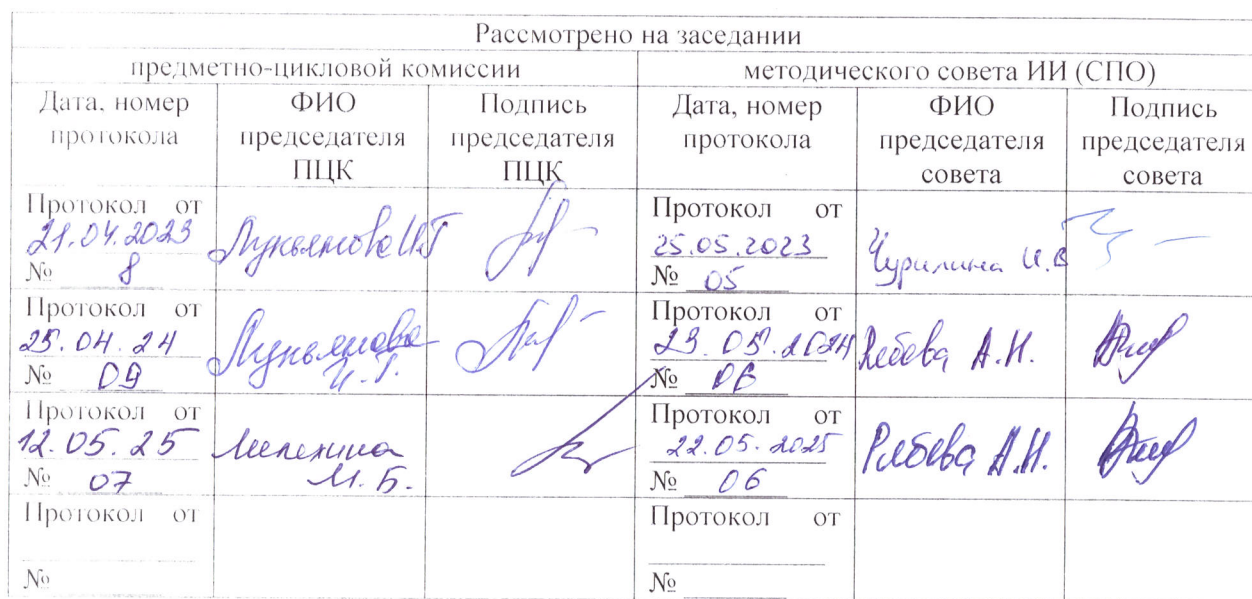 Рассмотрено на заседании
предметно-цикловой комиссии
методического совета ИИ (СПО)
Дата, номер
протокола
ФИО
председателя
ПЦК
Подпись
председателя
ПЦК
Дата, номер
протокола
ФИО
председателя
совета
Подпись
председателя
совета
Протокол от
21.04.2023
№ 8
Лукьянова И.Г
Протокол от
25.05.2023
№ 05
Чурилина И.В
Протокол от
25.04.24
№ 09
Лукьянова
И.Г.
Протокол от
23.05.2024
№ 06
А.Н.
Протокол от
12.05.25
№ 07
М.Б.
Протокол от
22.05.2025
№ 06
А.Н.
Протокол от
№
Протокол от
№